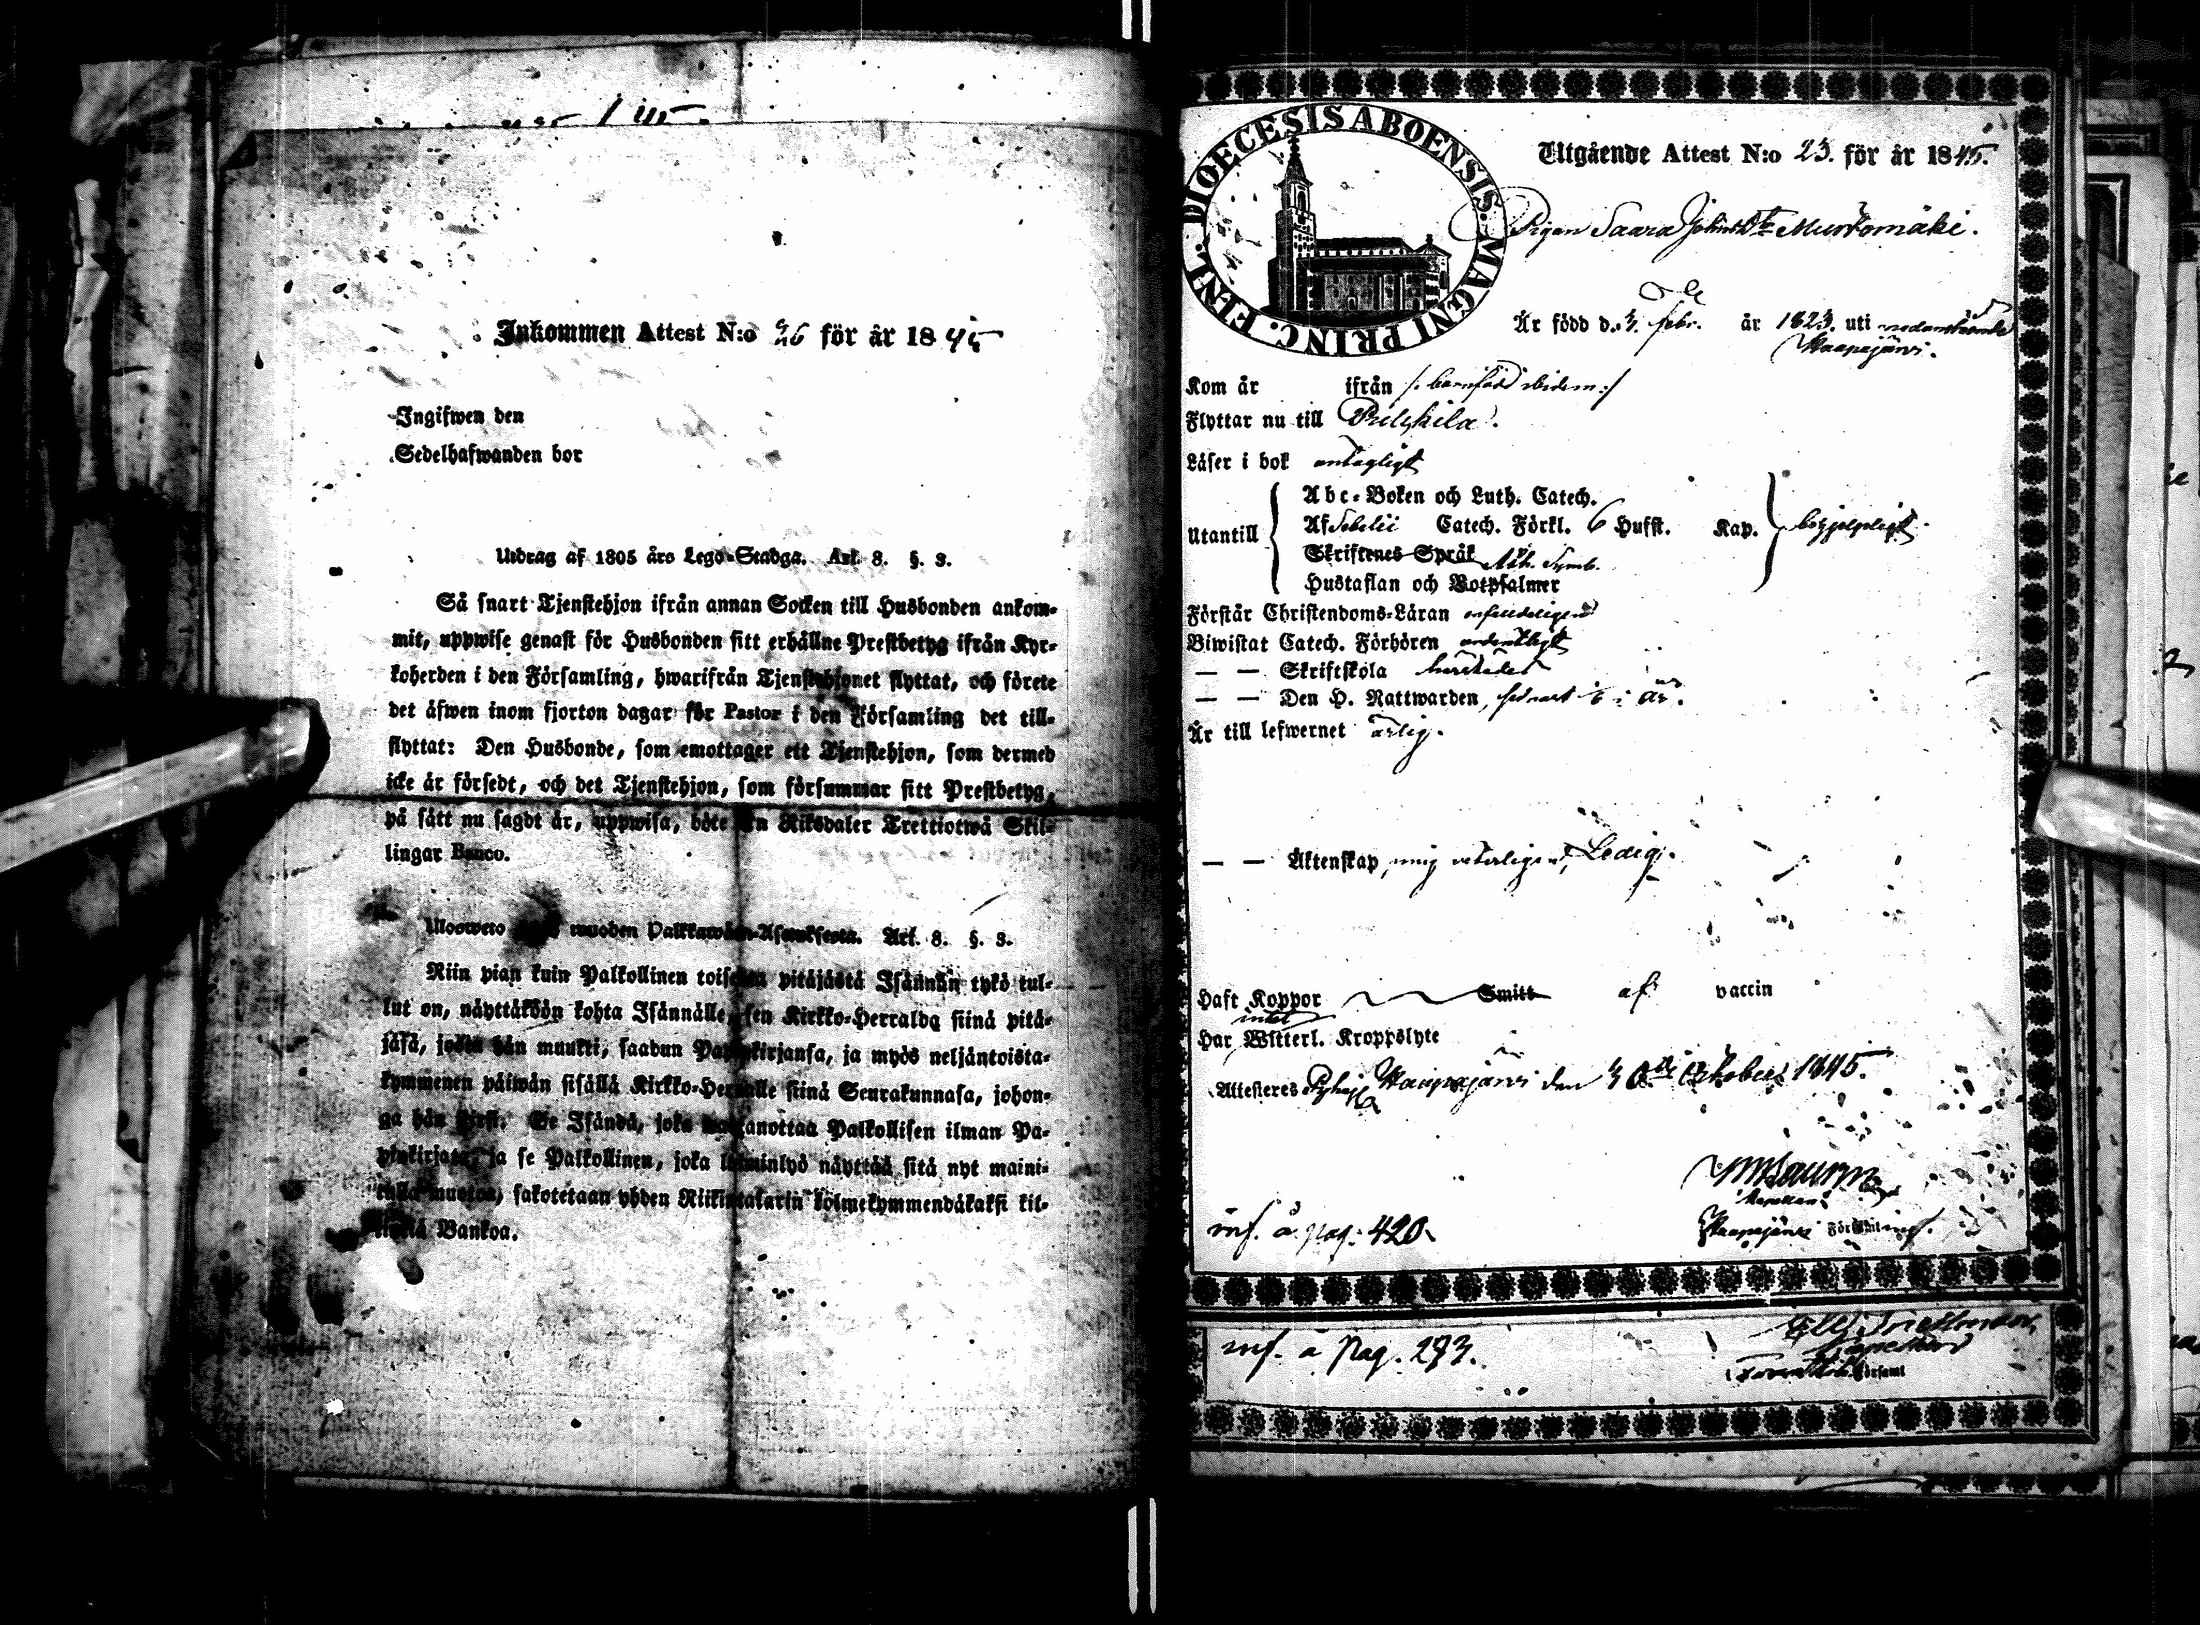 Inkommen Attest N:o 26 för år 1845
Ingifwen den
Sedelhafwanden bor
Utdrag af 1805 års Lego-Stadga. Art. 8. §. 3.
Så snart Tjenstehjon ifrån annan Socken till Husbonden ankom-
mit, uppwise genast för Husbonden sitt erhållne Prestbetyg ifrån Kyr-
koherden i den Församling, hwarifrån Tjenstehjonet flyttat, och förete
det äfwen inom fjorton dagar för Pastor i den Församling det till-
flyttat: Den Husbonde, som emottager ett Tjenstehjon, som dermed
icke är försedt, och det Tjenstehjon, som försummar sitt Prestbetyg,
på sätt nu sagdt är, uppwisa, böte en Riksdaler Trettiotwå Skil-
lingar Banco.
Ulosweto muoden Palkkawäen-Asetuksesta. Art. 8. §. 3.
Niin pian kuin Palkollinen toisesta pitäjästä Isännän tykö tul-
lut on, näyttäköön kohta Isännälle, sen Kirkko-Herralda siinä pitä-
jäsä, josta hän muutti, saadun Papinkirjansa, ja myös neljäntoista-
kymmenen päiwän sisällä Kirkko-Herralle siinä Seurakunnasa, johon-
ga hän siirsi. Se Isändä, joka wastanottaa Palkollisen ilman Pa-
pinkirjata, ja se Palkollinen, joka laiminlyö näyttää sitä nyt maini-
tulla muotoa, sakotetaan yhden Riikintalarin kolmekymmendäkaksi kil-
lingiä Bankoa.
DIOECESIS ABOENSIS. MAGNI PRINC. FINL.
Utgående Attest N:o 23. för år 1845.
Pigan Saara Murtomäki.
Är född d. 3. Febr. år 1823. uti nedanstående
Haapajärvi.
Kom år ifrån /: barnfödd ibidem :/
Flyttar nu till Pulkkila.
Läser i bok antagligt
Utantill
Abc-Boken och Luth. Catech.
Af Sebelii Catech. Förkl. 6 Hufst. Kap.
Skriftenes Språk Ath. Symb.
Hustaflan och Botpsalmer
begripligt.
Förstår Christendoms-Läran enfaldeligen
Biwistat Catech. Förhören ordentligt
— — Skriftskola
— — Den H. Nattwarden, sednast i år.
Är till lefwernet ärlig.
— — Äktenskap, mig veterligen, Ledig.
Haft Koppor Smitt af vaccin
intet
Har Witterl. Kroppslyte
Attesteres Haapajärvi den 30de October 1845.
Kapellan
Haapajärvi Församling.
inf. å pag: 420.
inf. å pag. 293.
Kapellan
Församl